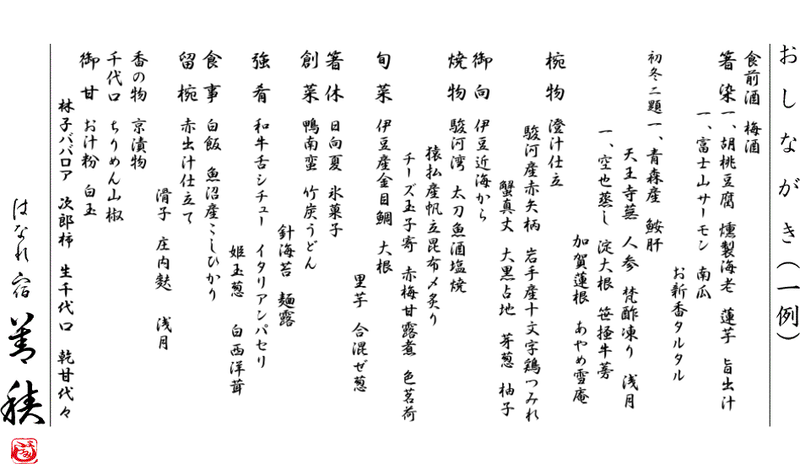 おしながき（一例）
食前酒 梅酒
箸染 一、胡桃豆腐 燻製海老 蓮芋 旨出汁
一、富士山サーモン 南瓜
お新香タルタル
初冬二題 一、青森産 鮟肝
天王寺蕪 人参 梵酢凍り 浅月
一、空也蒸し 淀大根 笹掻牛蒡
加賀蓮根 あやめ雪庵
椀物 澄汁仕立
駿河産赤矢柄 岩手産十文字鶏つみれ
蟹真丈 大黒占地 芽葱 柚子
御向 伊豆近海から
焼物 駿河湾 太刀魚酒塩焼
猿払産帆立昆布〆炙り
チーズ玉子寄 赤梅甘露煮 色茗荷
旬菜 伊豆産金目鯛 大根
里芋 合混ぜ葱
箸休 日向夏 氷菓子
創菜 鴨南蛮 竹炭うどん
針海苔 麺露
強肴 和牛舌シチュー イタリアンパセリ
姫玉葱 白西洋茸
食事 白飯 魚沼産こしひかり
留椀 赤出汁仕立て
滑子 庄内麩 浅月
香の物 京漬物
千代口 ちりめん山椒
御甘 お汁粉 白玉
林子ババロア 次郎柿 生千代口 乾甘代々
はなれ宿 善積